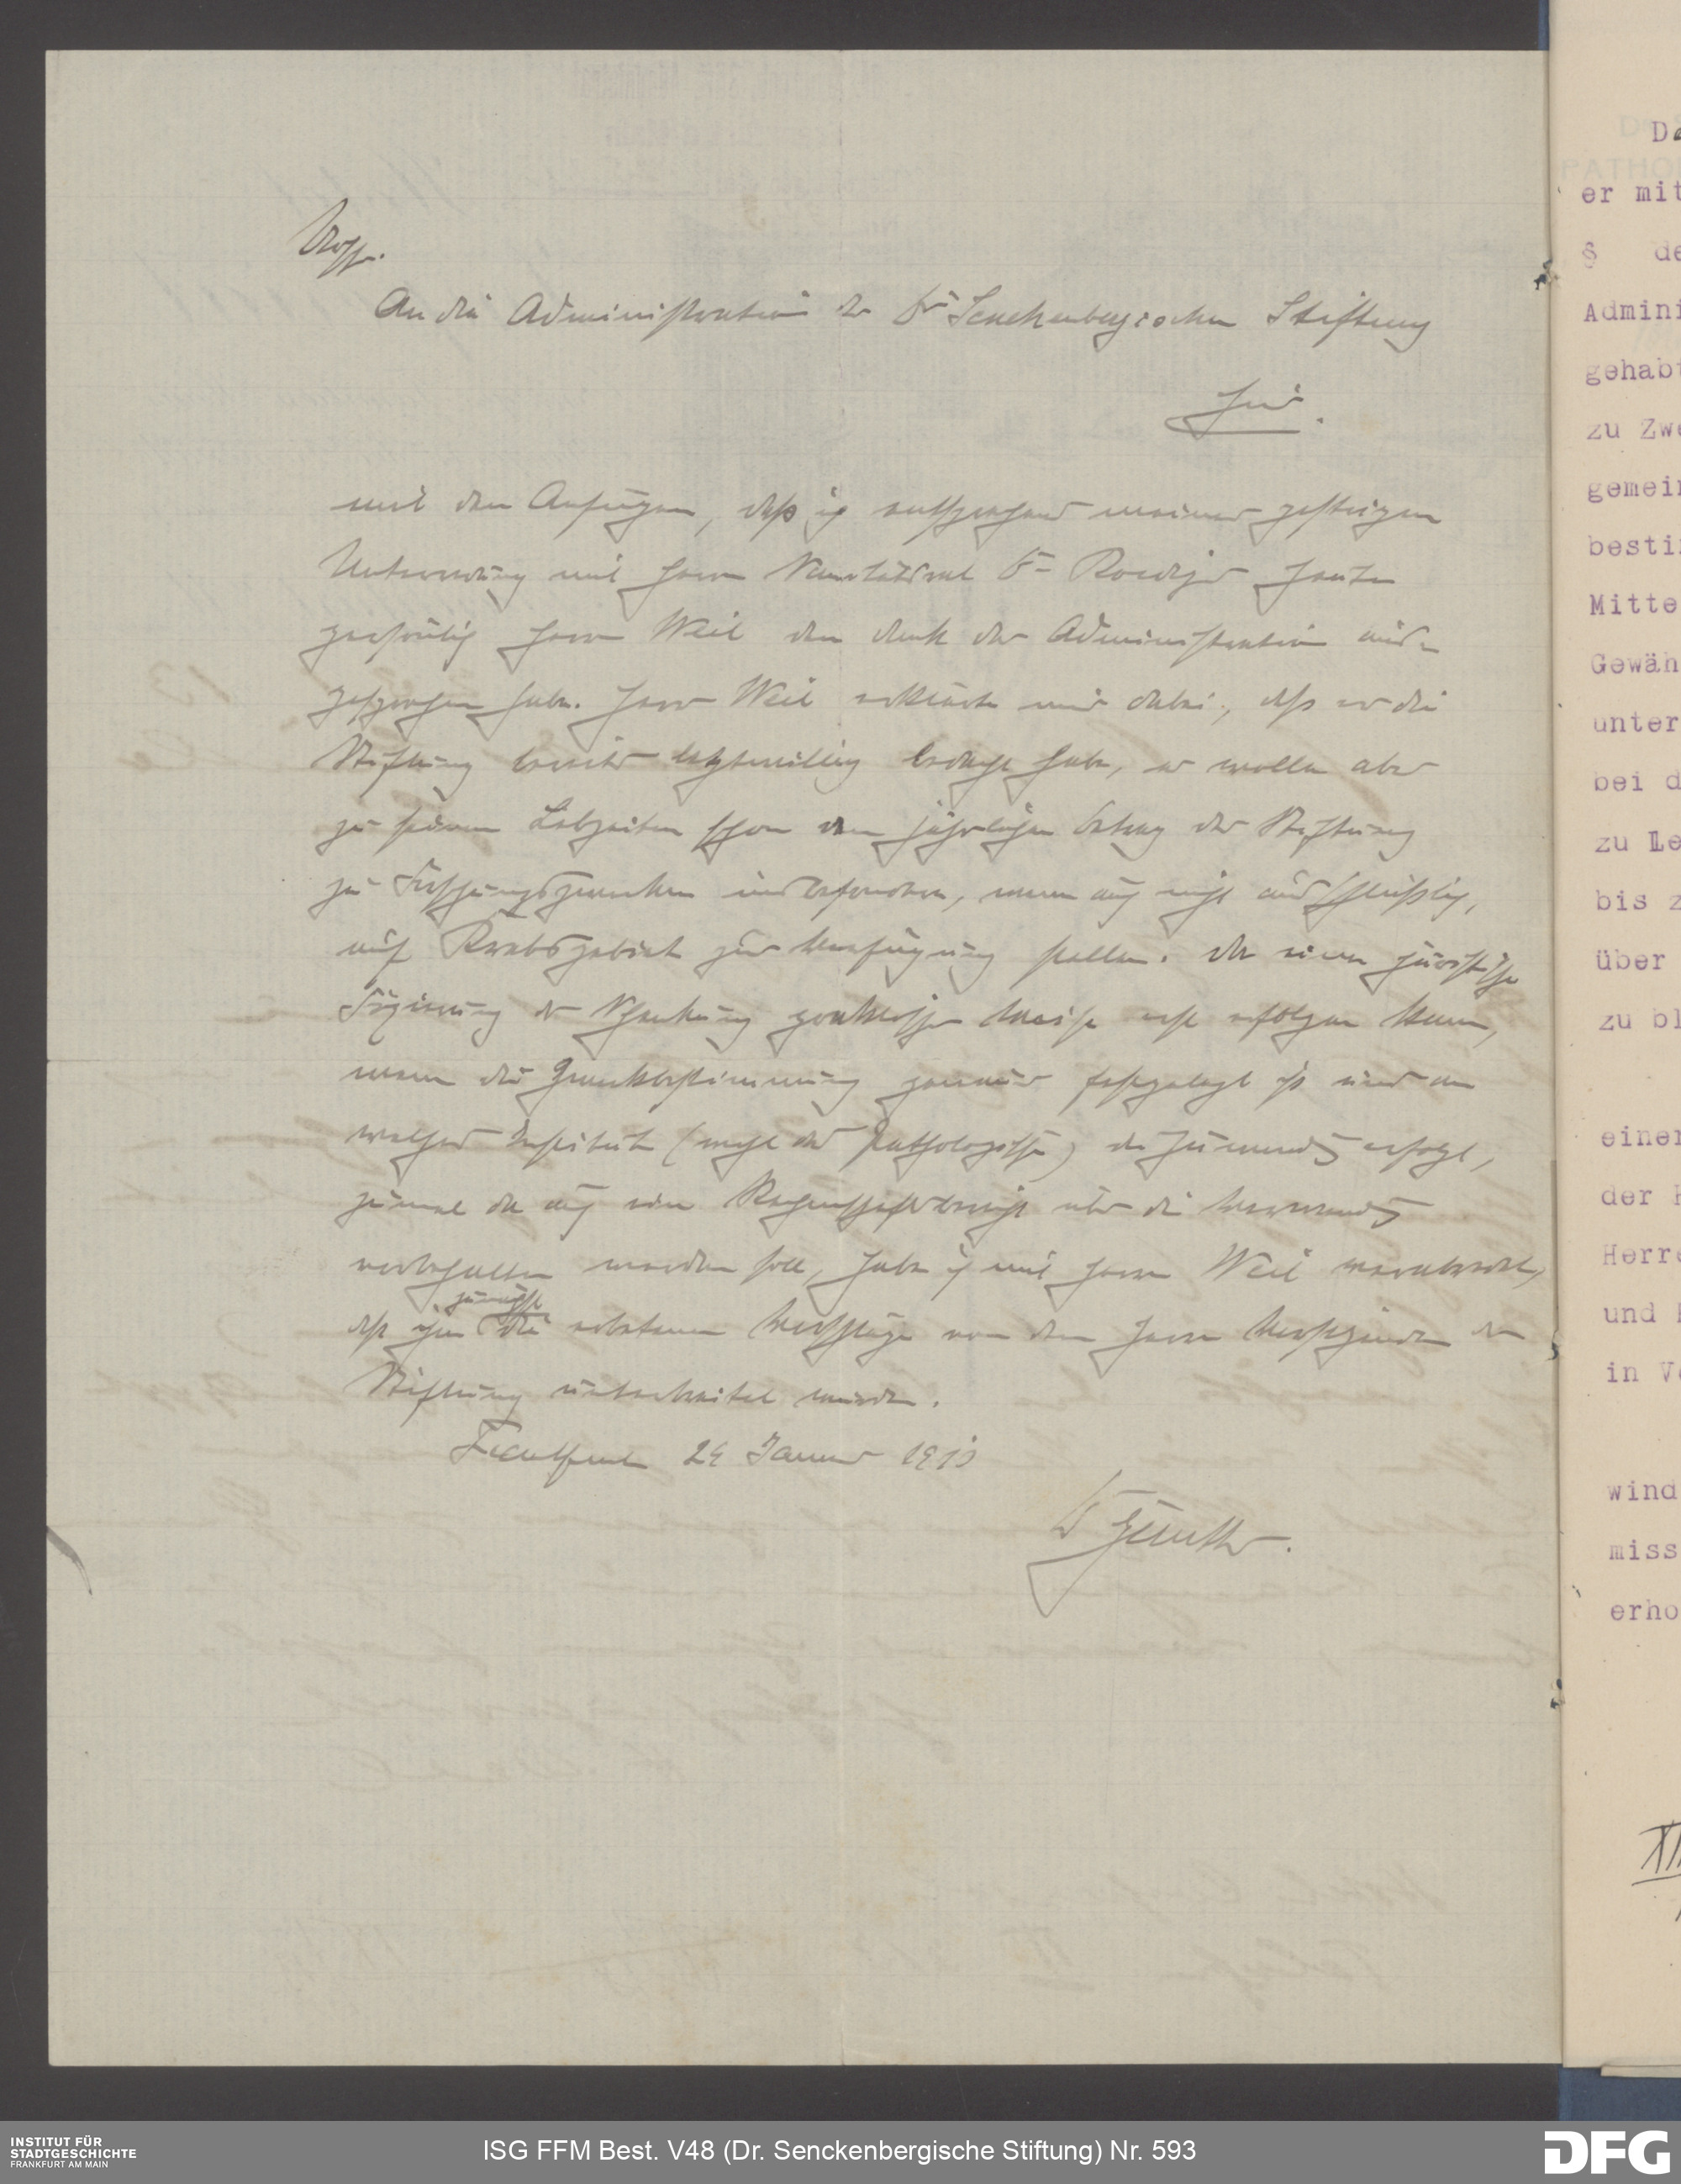 An die Administration der Dr Senckenbergischen Stiftung
hier.
mit dem Anfügen, daß ich entsprechend meiner gestrigen
Unterredung mit Herrn Sanitätsrat Dr Roediger heute
persönlich Herrn Weil den Dank der Administration aus-
gesprochen habe. Herr Weil erklärte mir dabei, daß er die
Stiftung bereits letztwillig bedacht habe, er wolle aber
zu seinen Lebzeiten schon den jährlichen Betrag der Stiftung
zu Forschungszwecken insbesondere, wenn auch nicht ausschließlich,
auf Krebsgebiet zur Verfügung stellen. Da eine juristische
Fixierung der Schenkung praktischer Weise erst erfolgen kann,
wenn die Zweckbestimmung genauer festgelegt ist und an
welches Institut (wohl das pathologische) die Zuwendg erfolgt,
zumal da auch ein Rechenschaftsbericht über die Verwendg
vorbehalten werden soll, habe ich mit Herrn Weil verabredet,
zunächst
daß ihm die erbetenen Vorschläge von dem Herrn Vorsitzenden der
Stiftung unterbreitet würden.
Frankfurt 29 Januar 1913
D
er mit
§ de
Admini
gehabt
zu Zwe
gemein
besti
Mitte
Gewäh
unter
bei d
zu Le
bis z
über
zu bl
einer
der
Herre
und
in Ve
wind
miss
erho
INSTITUT FÜR
STADTGESCHICHTE
FRANKFURT AM MAIN
ISG FFM Best. V48 (Dr. Senckenbergische Stiftung) Nr. 593
DFG